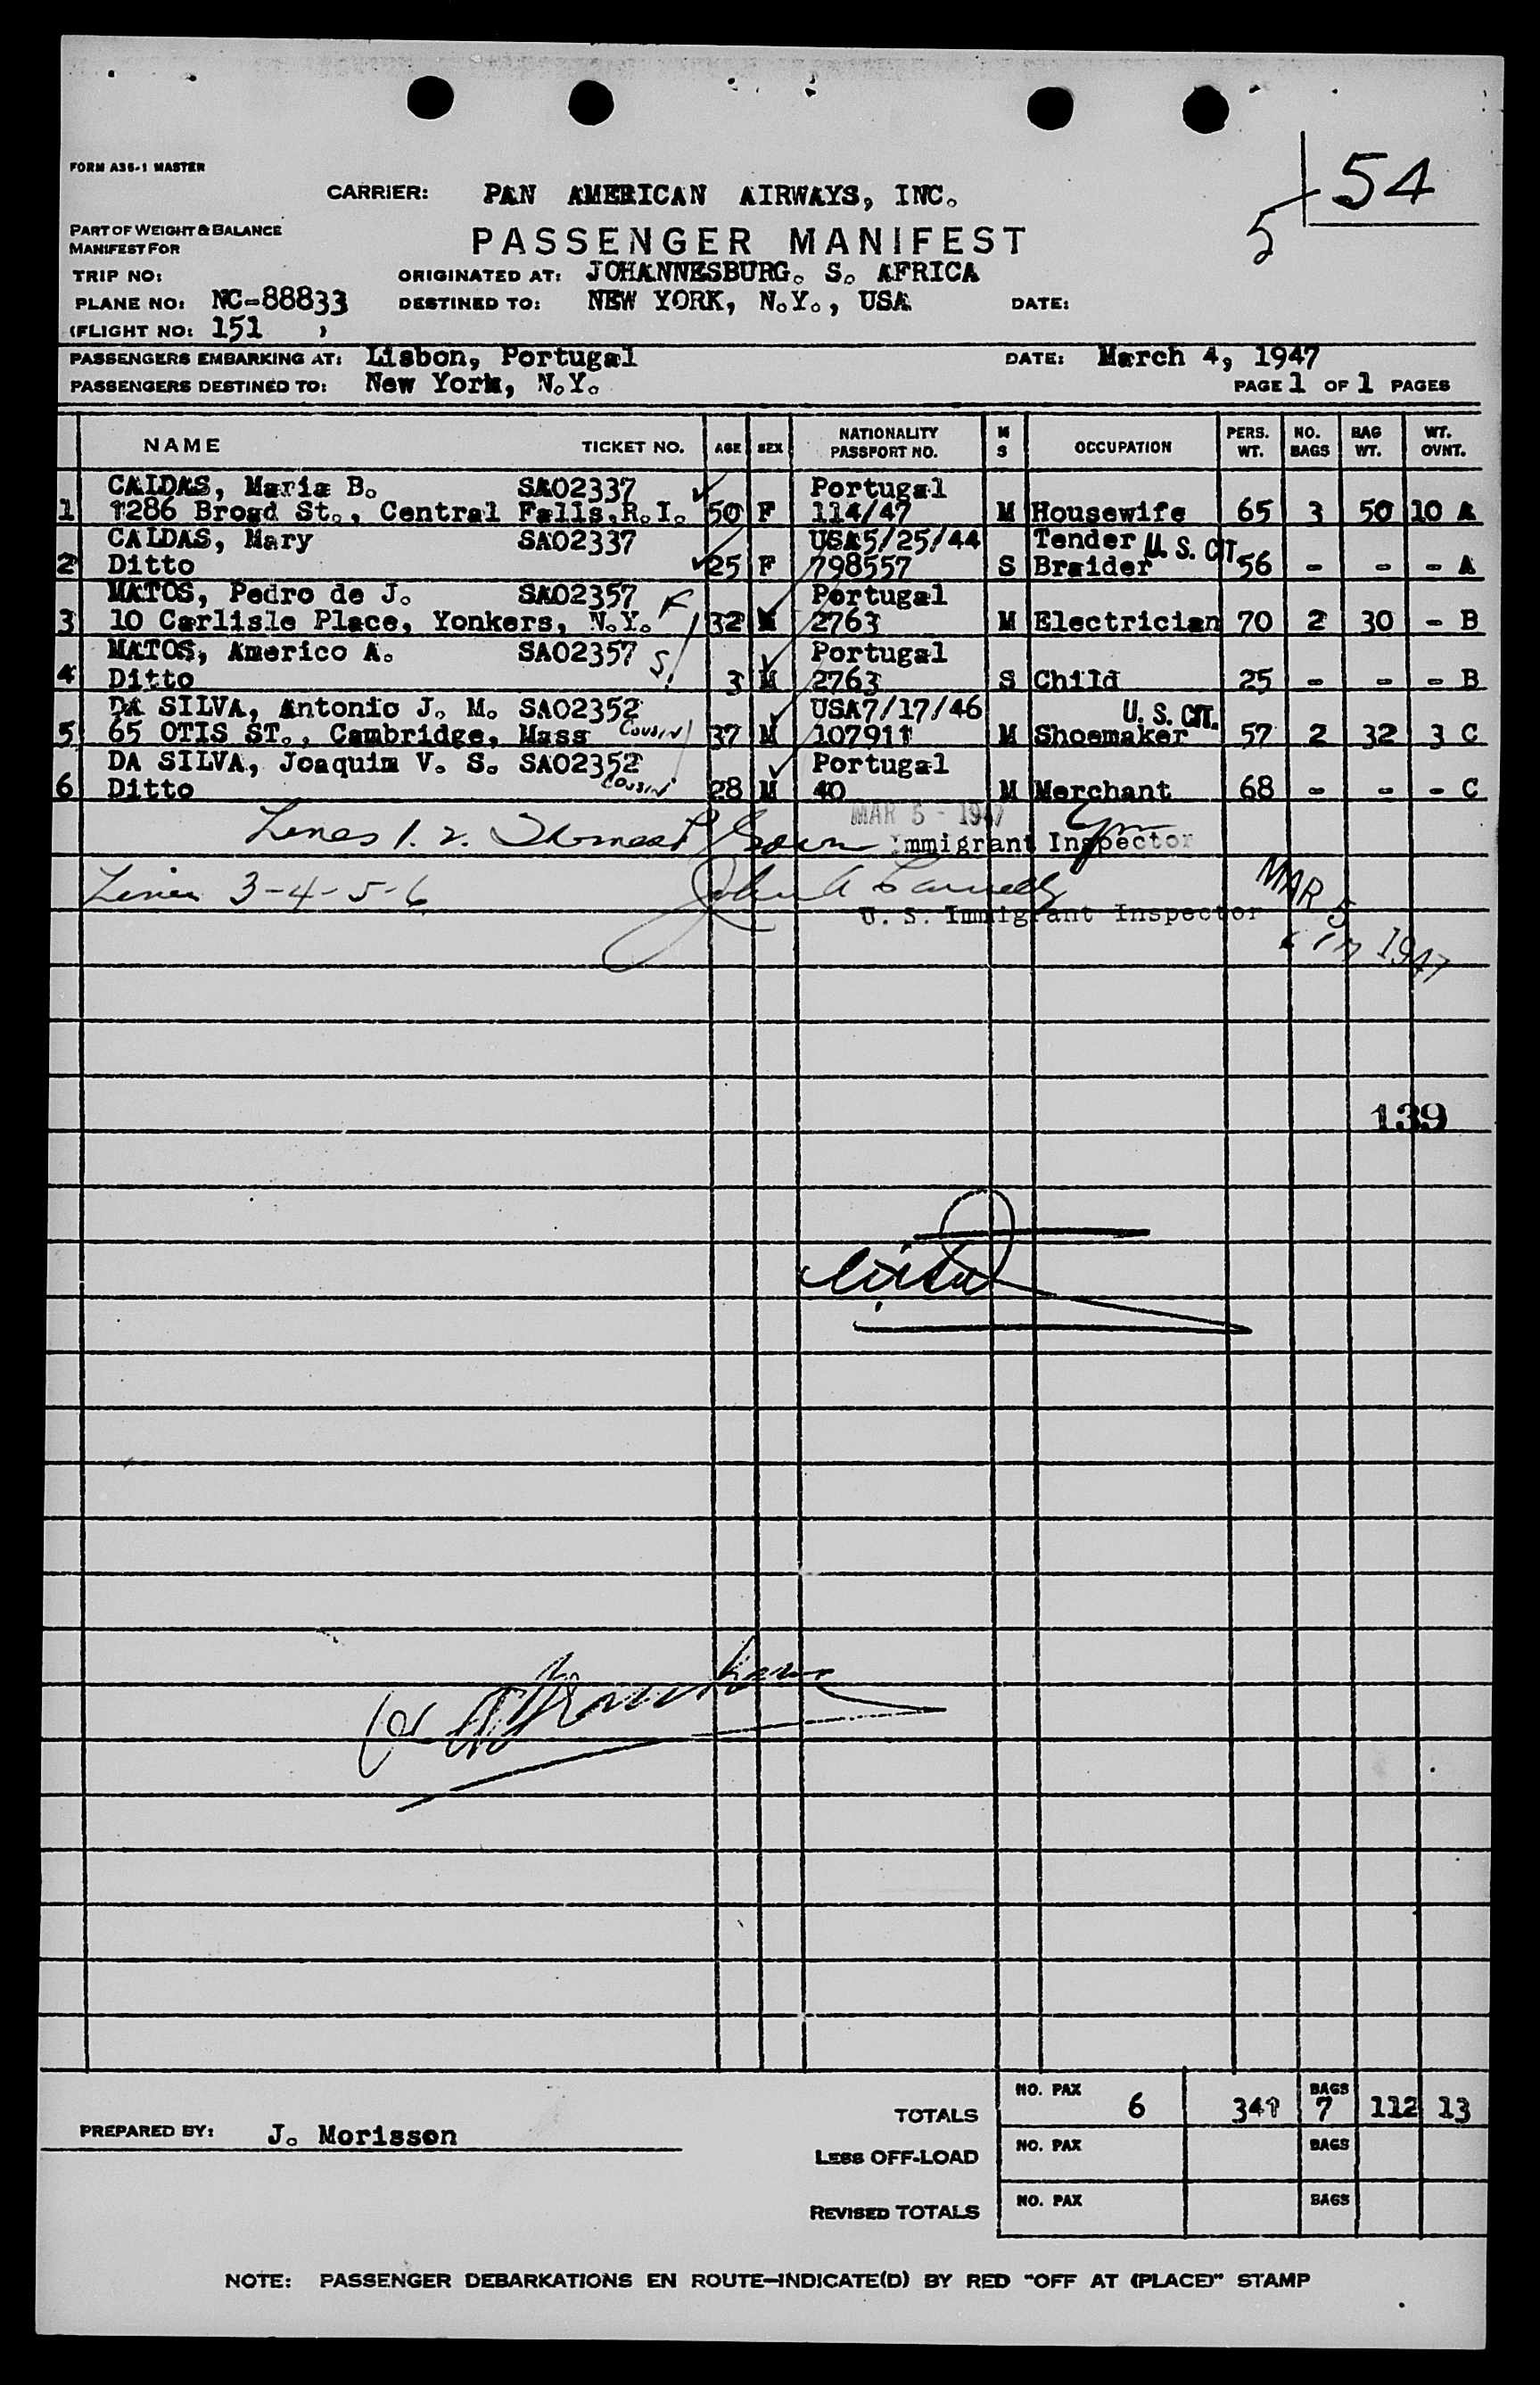 FORM A36-1 MASTER
54
5
CARRIER: PAN AMERICAN AIRWAYS, INC.
PART OF WEIGHT & BALANCE
MANIFEST FOR
PASSENGER MANIFEST
TRIP NO: ORIGINATED AT: JOHANNESBURG. S. AFRICA
PLANE NO: NC-88833 DESTINED TO: NEW YORK, N.Y., USA DATE:
(FLIGHT NO: 151 )
PASSENGERS EMBARKING AT: Lisbon, Portugal DATE: March 4, 1947
PASSENGERS DESTINED TO: New York, N.Y. PAGE 1 OF 1 PAGES
NAME TICKET NO. AGE SEX NATIONALITY PASSPORT NO. M S OCCUPATION PERS. WT. NO. BAGS BAG WT. WT. OVNT.
CALDAS, Maria B. SA02337 Portugal
1 1286 Broad St., Central Falls, R.I. 50 F 114/47 M Housewife 65 3 50 10 A
CALDAS, Mary SA02337 USA5/25/44 Tender U.S. CIT.
2 Ditto 25 F 798557 S Braider 56 - - - A
MATOS, Pedro de J. SA02357 F Portugal
3 10 Carlisle Place, Yonkers, N.Y. 32 M 2763 M Electrician 70 2 30 - B
MATOS, Americo A. SA02357 S Portugal
4 Ditto 3 M 2763 S Child 25 - - - B
DA SILVA, Antonio J. M. SA02352 USA7/17/46 U.S. CIT.
5 65 OTIS ST., Cambridge, Mass COUSIN 37 M 107911 M Shoemaker 57 2 32 3 C
DA SILVA, Joaquim V. S. SA02352 Portugal
6 Ditto COUSIN 28 M 40 M Merchant 68 - - - C
MAR 5 - 1947
Lines 1. 2. Immigrant Inspector
Lines 3-4-5-6 John A
U. S. Immigrant Inspector
MAR 5 1947
139
TOTALS NO. PAX 6 341 BAGS 7 112 13
PREPARED BY: J. Morisson
LESS OFF-LOAD NO. PAX BAGS
REVISED TOTALS NO. PAX BAGS
NOTE: PASSENGER DEBARKATIONS EN ROUTE—INDICATE(D) BY RED "OFF AT (PLACE)" STAMP